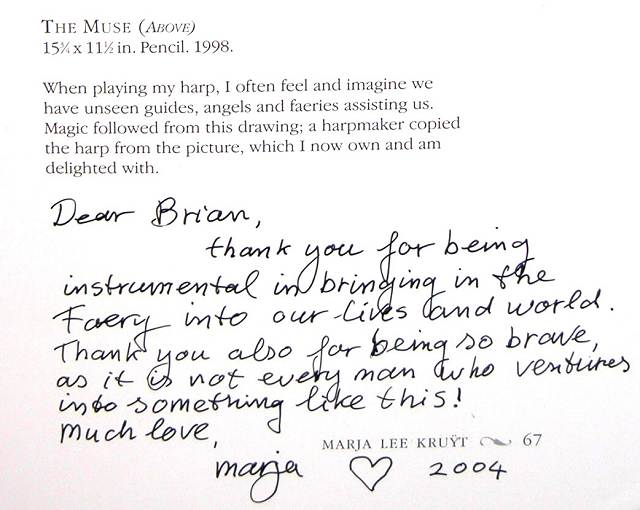 THE MUSE (ABOVE)
15¾ x 11½ in. Pencil. 1998.
When playing my harp, I often feel and imagine we
have unseen guides, angels and faeries assisting us.
Magic followed from this drawing; a harpmaker copied
the harp from the picture, which I now own and am
delighted with.
Dear Brian,
thank you for being
instrumental in bringing in the
Faery into our lives and world.
Thank you also for being so brave,
as it is not every man who ventures
into something like this!
Much love,
MARJA LEE KRUŸT 67
marja ♡ 2004